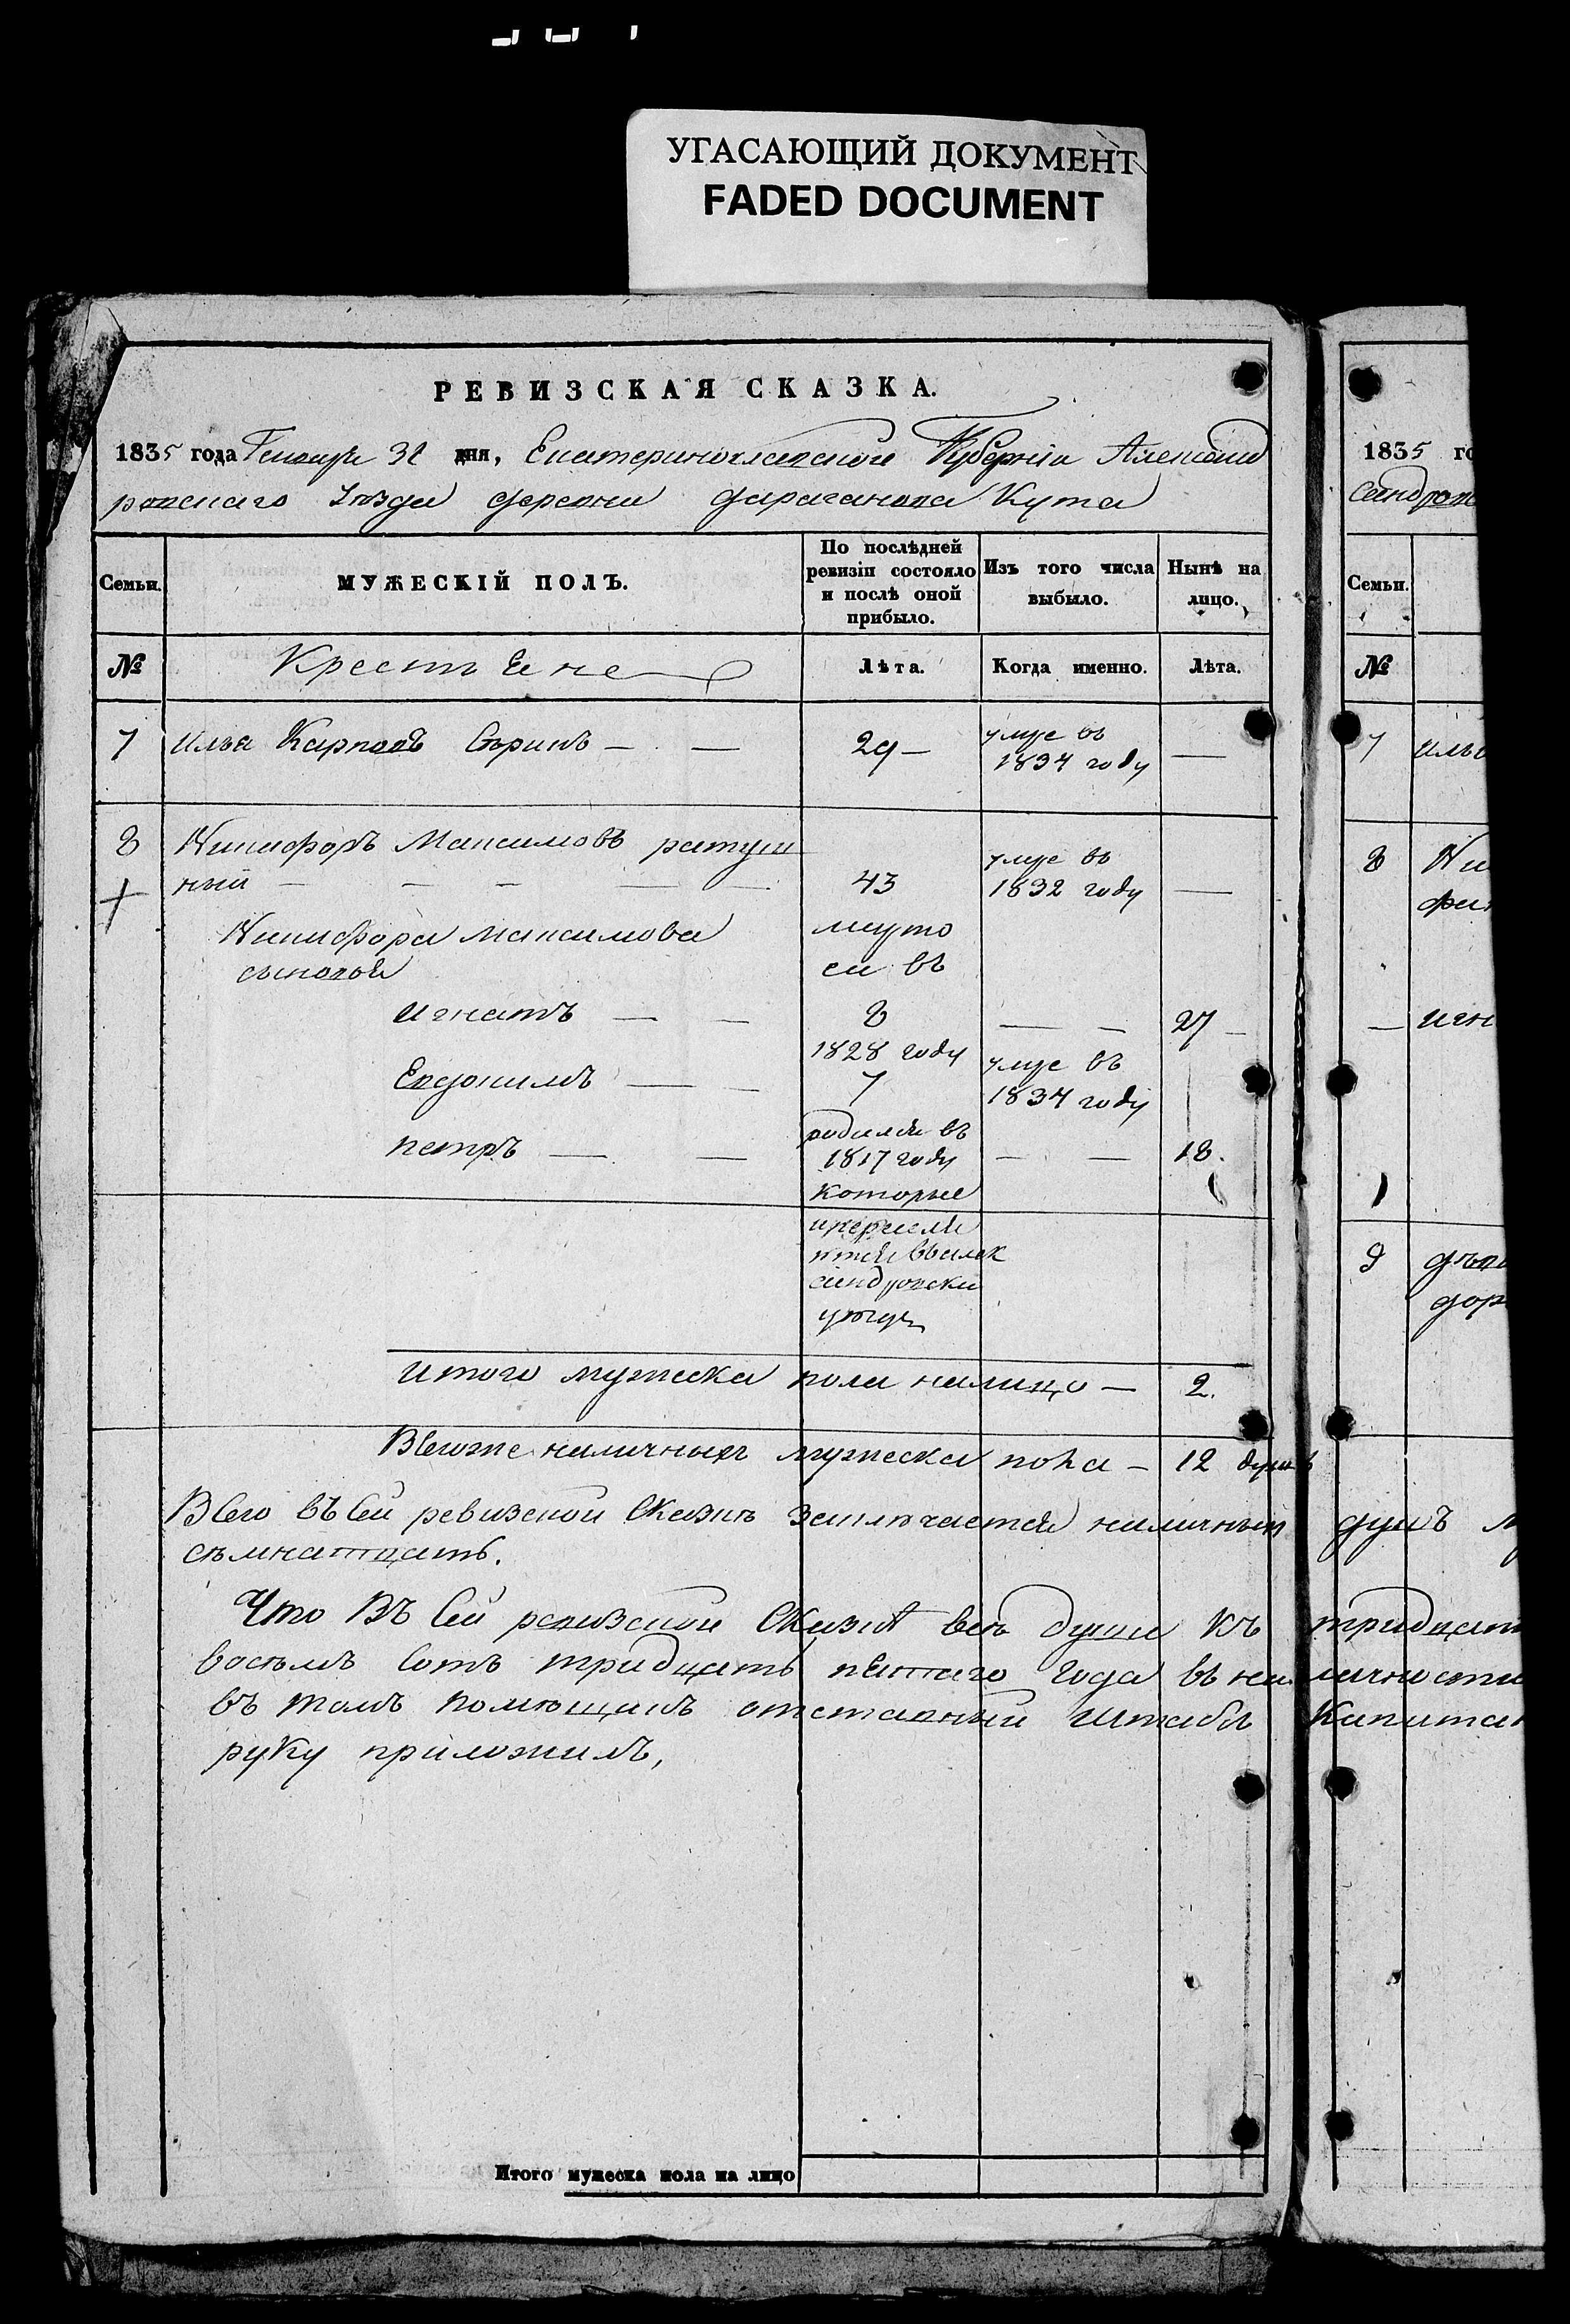 УГАСАЮЩИЙ ДОКУМЕНТ
FADED DOCUMENT
РЕВИЗСКАЯ СКАЗКА.
1835 года Генваря 31 дня, Екатеринославской Губерніи Александ
ровскаго уѣзда деревни Дараганова Кута
Семьи.
МУЖЕСКІЙ ПОЛЪ.
По послѣдней ревизіи состояло и послѣ оной прибыло.
Изъ того числа выбыло.
Нынѣ на лицо.
№
Крестьяне
Лѣта.
Когда именно.
Лѣта.
7 Илья Карповъ 29 умре въ 1834 году
8 Никифоръ Максимовъ ратуш
ный 43 умре въ 1832 году
Никифора Максимова
сыновья
Игнатъ 8 27
1828 году
Евдокимъ 7 умре въ 1834 году
Петръ родился въ 1817 году 18.
которые
въ алек
сандровски
уѣзде
Итого мужеска пола налицо 2.
Всего же наличныхъ мужеска пола 12 душъ
Всего въ сей ревизской сказкѣ заключается наличныхъ душъ
съмнатцать.
Что въ сей ревизской сказкѣ всѣ души къ тридцат
восемь сотъ тридцать пятаго года въ наличности
въ томъ помѣщикъ отставный Штабсъ Капитан
руку приложилъ,
Итого мужеска пола на лицо
1835 го
сандров
Семьи.
№
7 Иль
8 Ни
Игн
9